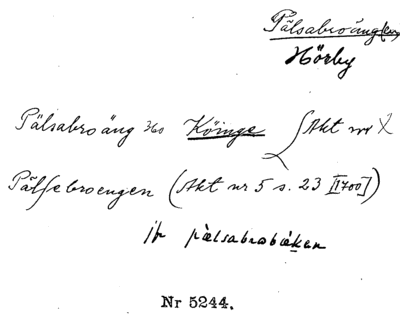 Pälsabroäng(en)
Hörby
Pälsabroäng Ho Köinge (Akt nr X
Pälsebroengen (Akt nr 5 s. 23 [1700])
jfr pælsabrobæken
Nr 5244.